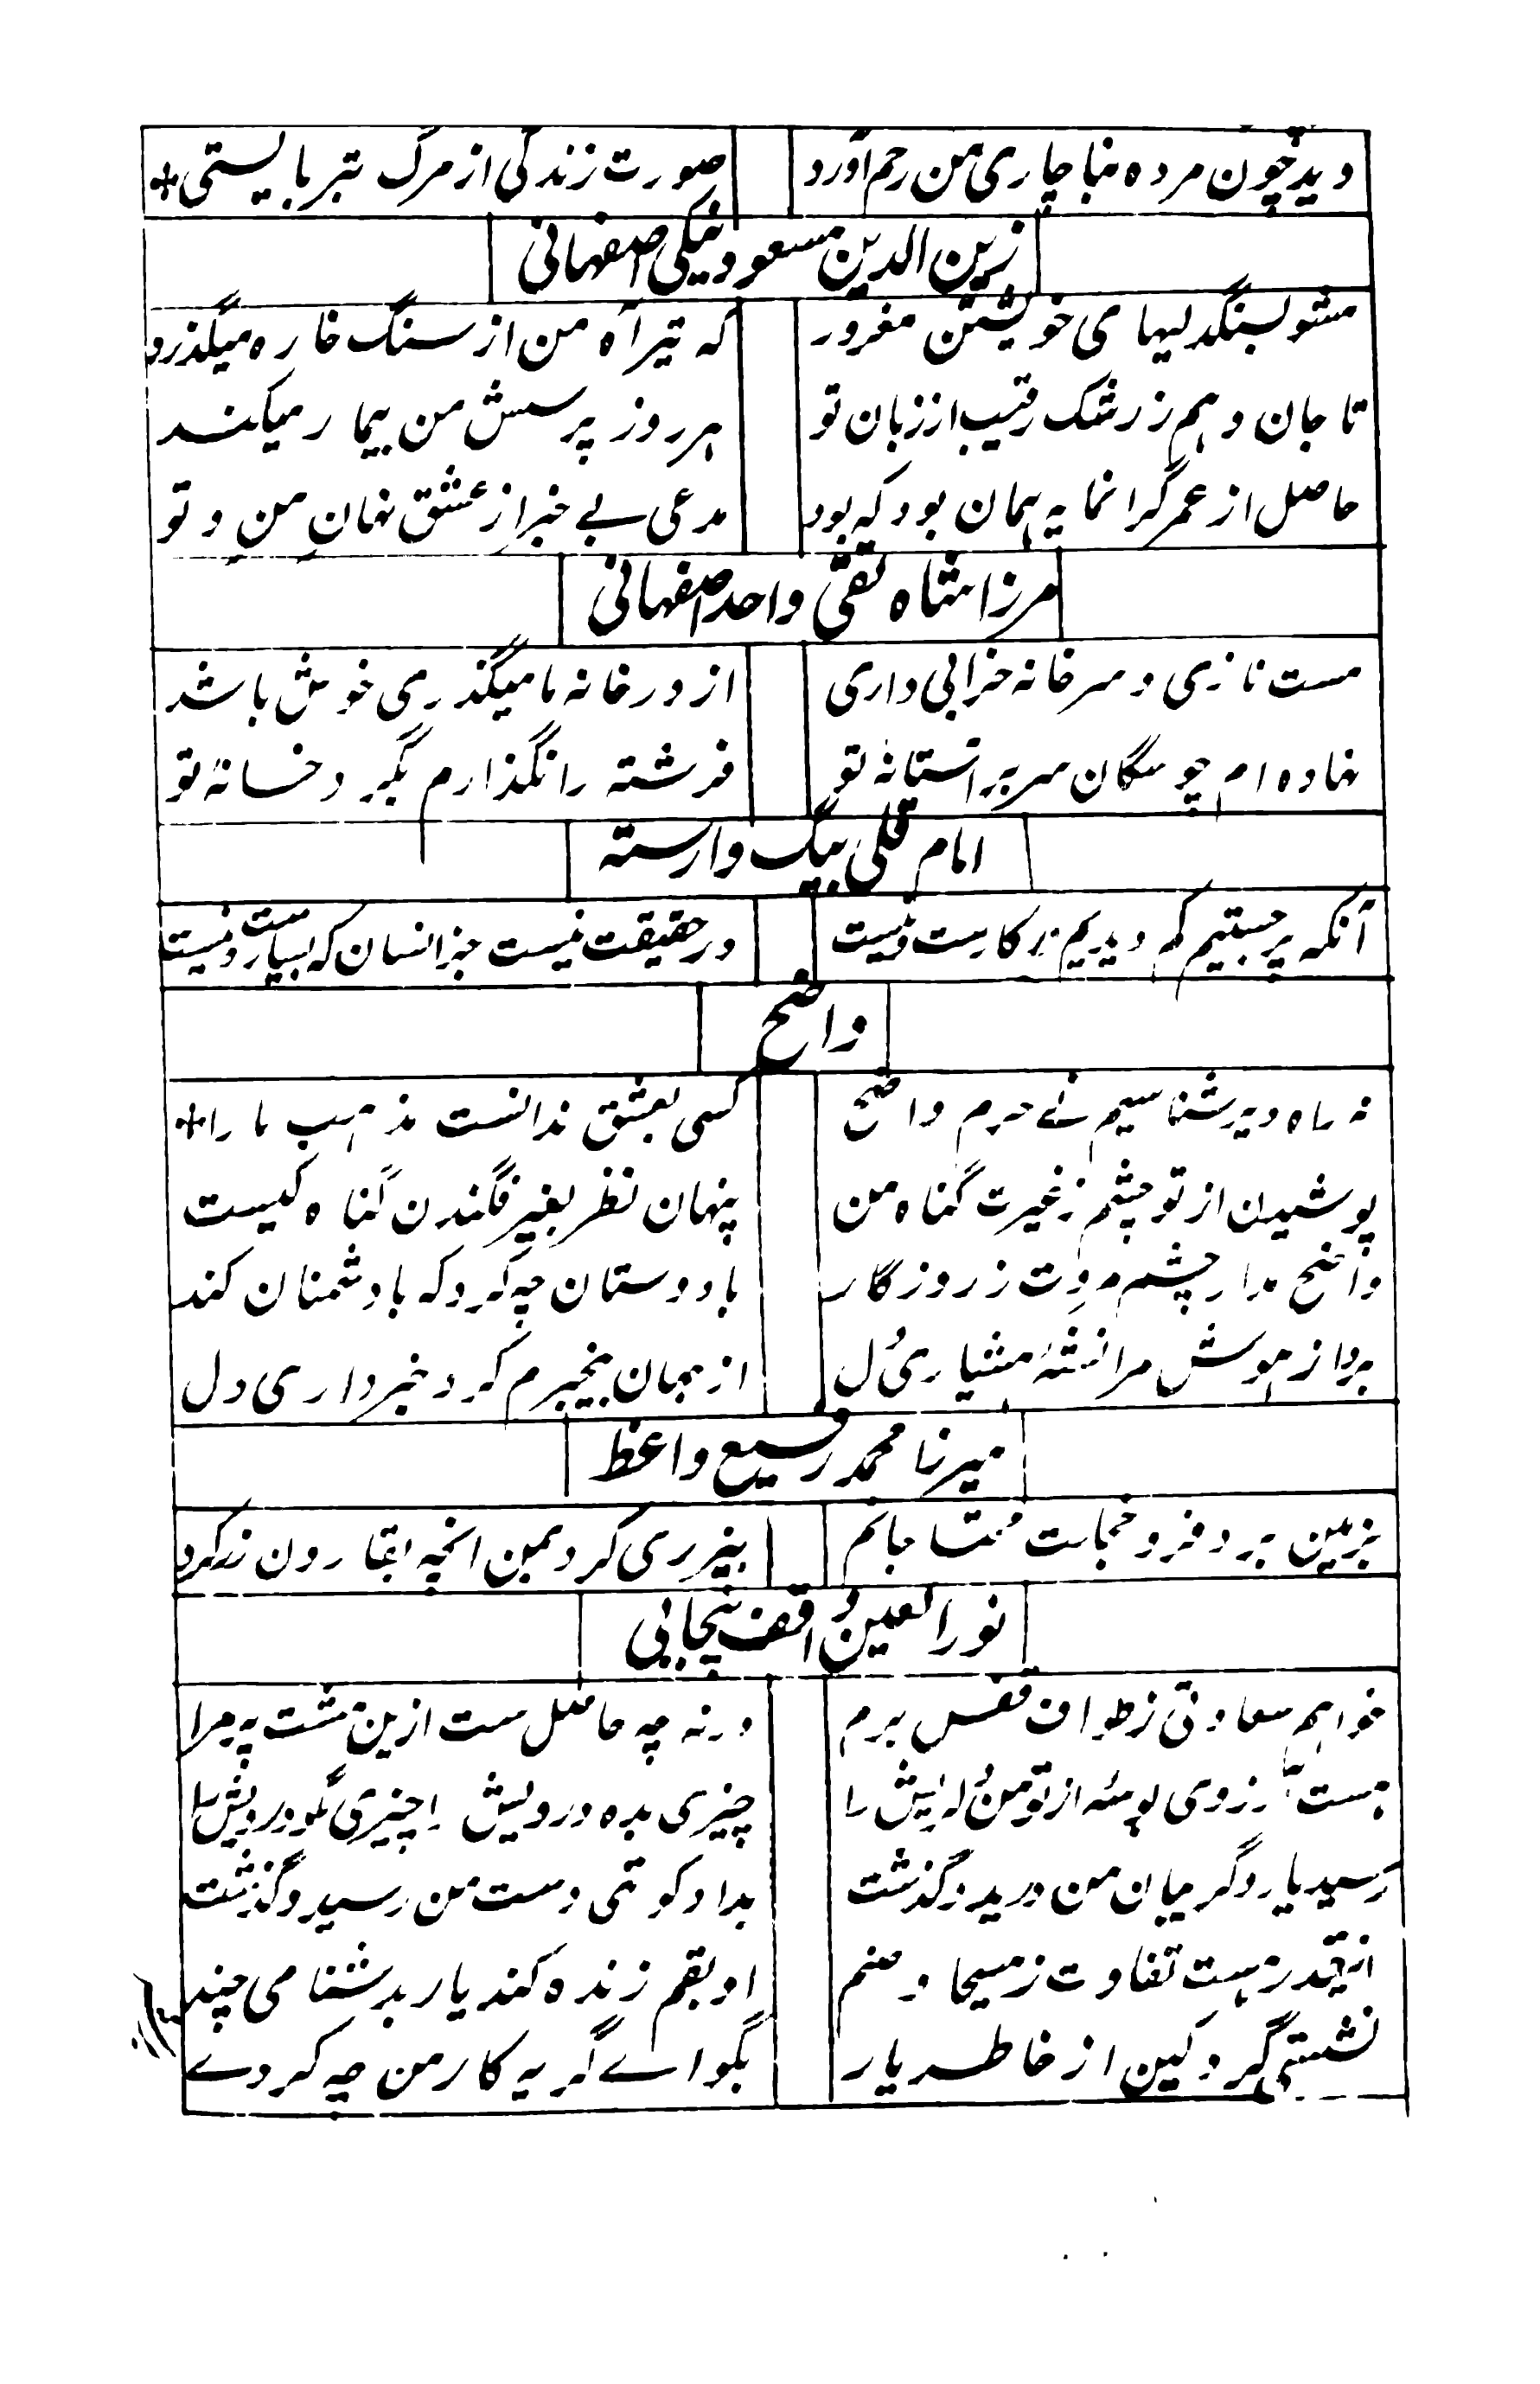 دید چون مرده بناچاری من رحم آورد صورت زندگی از مرگ بتر بایستی*
زین الدین مسعود نیکی اصفهانی
مشو بسنگدلیهای خویشتن مغرور که تیر آه من از سنگ خاره میگذرد
تا جان دهم ز رشک رقیب از زبان تو هر روز پرسش من بیمار میکند
حاصل از عمر گرانمایه همان بود که بود مدعی بے خبر از عشق نهان من و تو
مرزا شاه تقی واحد اصفهانی
مست نازی و سر خانه خرابی داری از در خانه ما میگذری خوش باشد
نهاده ام چو سگان سر بر آستانهٔ تو فرشته را نگذارم بگرد خانهٔ تو
امام قلی بیگ وارسته
آنکه پر جستیم کم دیدیم درکارست و نیست در حقیقت نیست جز انسان که بسیارست و نیست
واضح
نه راه دیر شناسیم نے حرم واضح کسی بعشق ندانست مذهب ما را*
پوشیدن از تو چشم ز غیرت گناه من پنهان نظر بغیر فگندن گناه کیست
واضح مدار چشم مروت ز روزگار با دوستان چه کرد که با دشمنان کند
برد از هوش مرا نشهٔ هشیاری دل از جهان بیخبرم کرد خبرداری دل
میرزا محمد رفیع واعظ
بزمین برد فرو خجلت محتاجانم بیزری کرد بمن آنچه بقارون زر کرد
نور العین واقف پنجابی
خواهم سعادتی ز طواف قفس برم ورنه چه حاصل ست ازین مشت پر مرا
هست آرزوی بوسهٔ از تو من دلریش را چیزی بده درویش را چیزی بگو درویش را
رسید یار و گریبان من درید و گذشت بداد کوتهی دست من رسید و گذشت
اینقدر هست تفاوت ز مسیحا و صنم او بقم زنده کند یار بدشنامی چند
نشستی گرد کین از خاطر یار بگو اے گریه کار من چه کردے